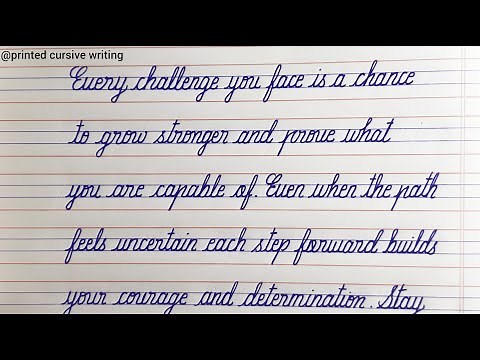 @printed cursive writing
Every challenge you face is a chance
to grow stronger and prove what
you are capable of. Even when the path
feels uncertain each step forward builds
your courage and determination. Stay